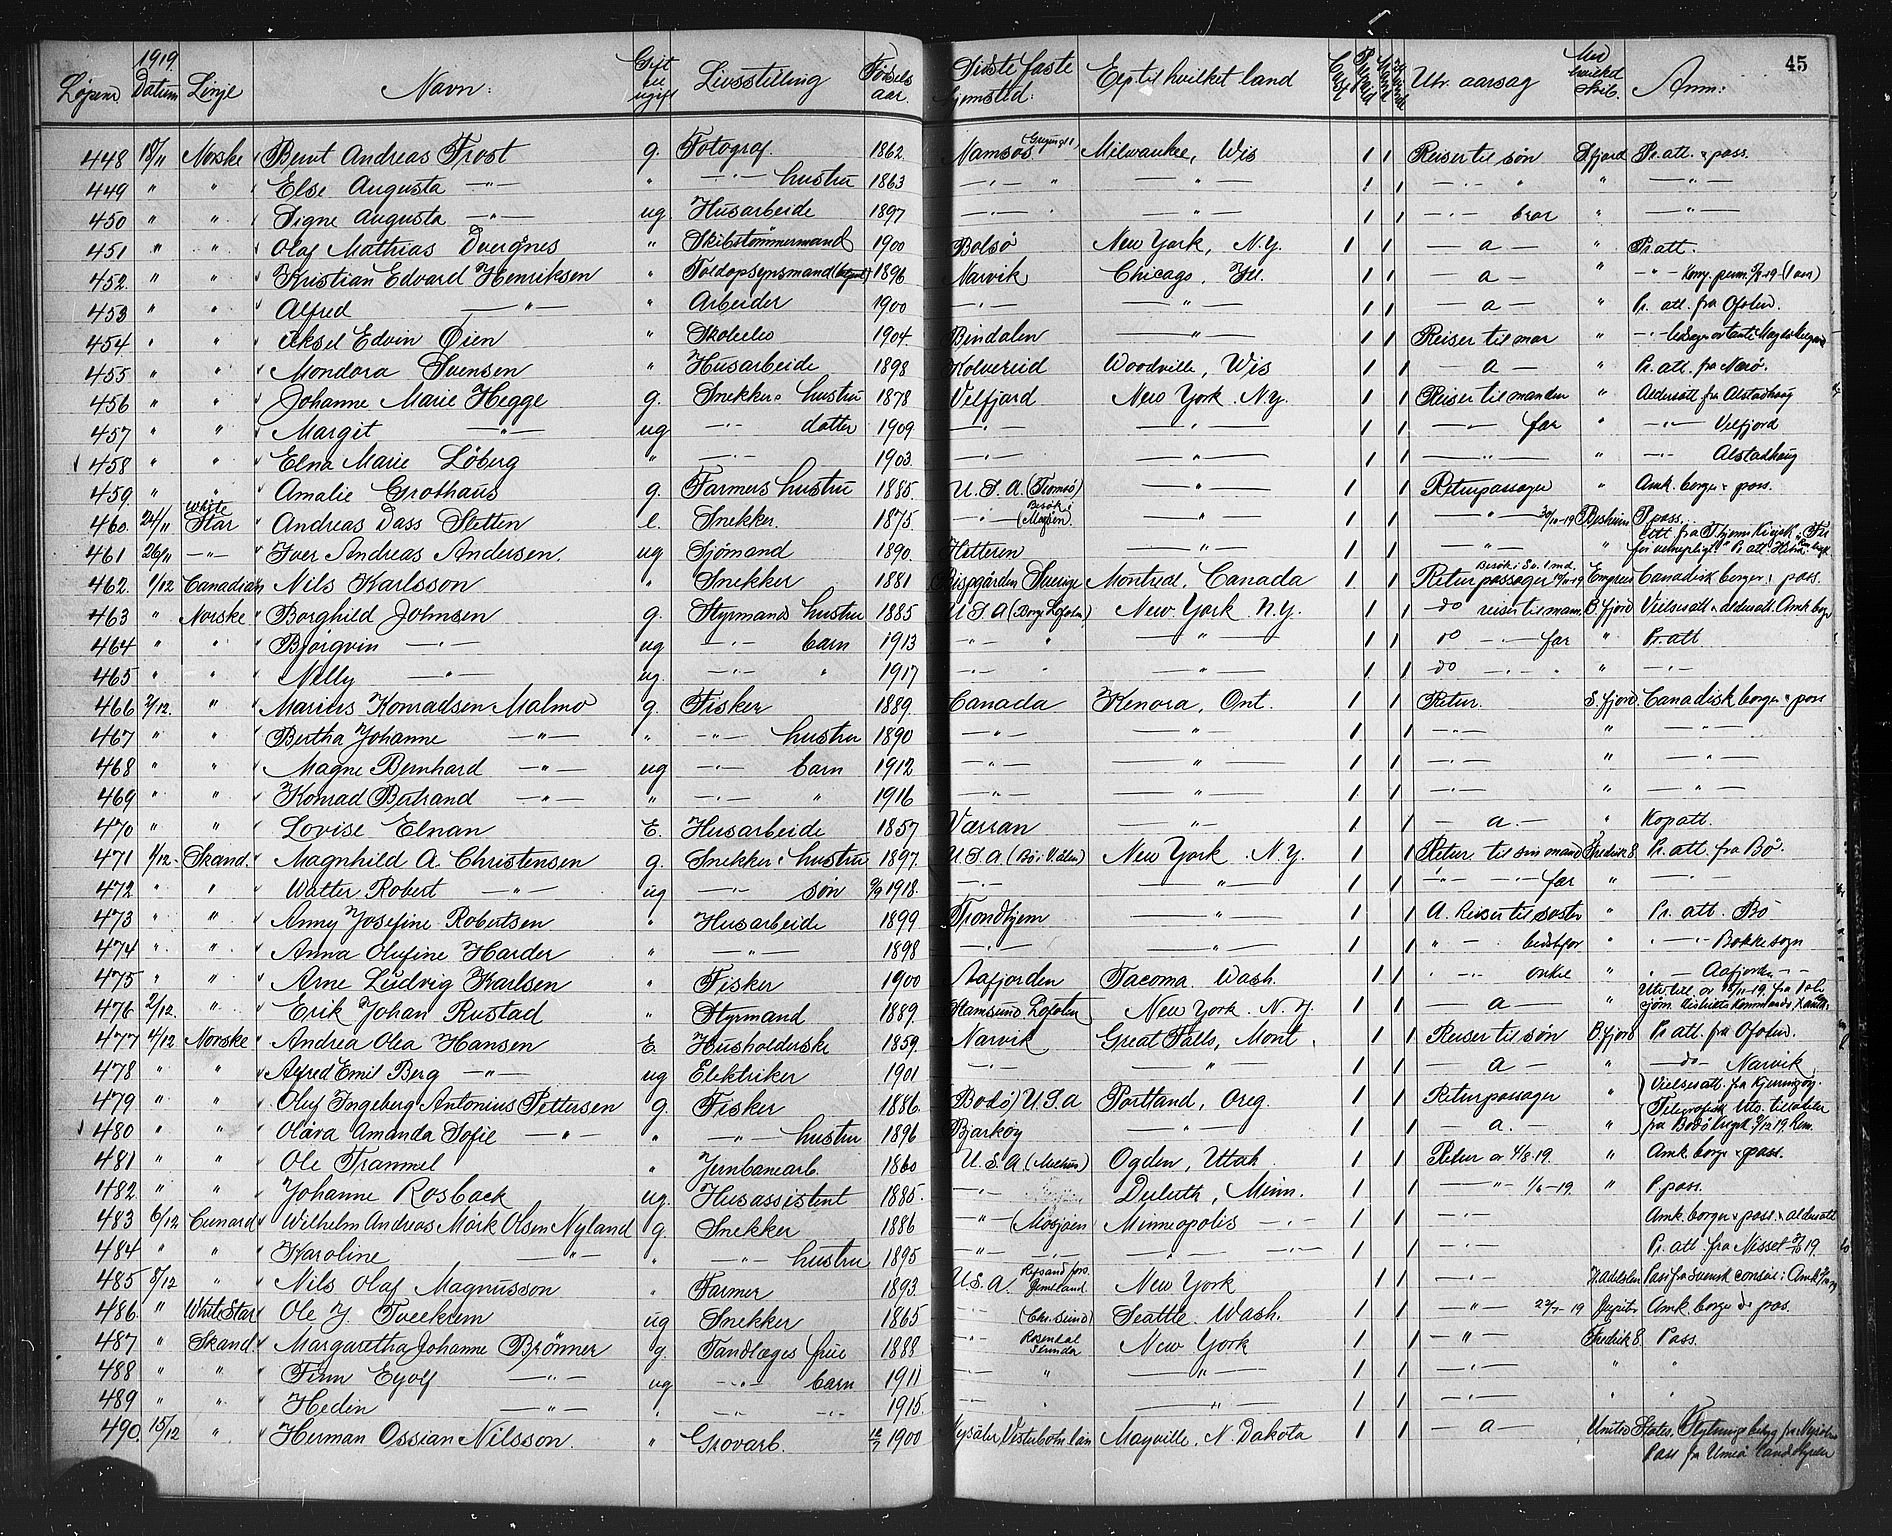 45
Løpenr 1919 Datum Linje Navn: Gift el. ugift Livsstilling Fødselsaar. Sidste faste hjemsted: Exp til hvilket land Utv. aarsag Med hvilket skib. Anm:
448 18/11 Norske Bernt Andreas Frost g. Fotograf. 1862 Namsos Milwaukee, Wis 1 1 Reiser til søn Pr. att. & pass.
449 " " Else Augusta —"— " —"— hustru 1863 —"— " —"— 1 1 —"— " " —"—
450 " " Signe Augusta —"— ug Husarbeide 1897 —"— " —"— 1 1 —"— bror " —"—
451 " " Olaf Mathias Dvergnes " Skibstømmermand 1900 Bolsø New York, N.Y. 1 1 — a — " Pr. att.
452 " " Kristian Edvard Henriksen " Toldopsynsmand 1896 Narvik Chicago, Ill. 1 1 — a — " —"—
453 " " Alfred —"— " Arbeider 1900 —"— —"— 1 1 — a — " Pr. att. fra Ofoten.
454 " " Aksel Edvin Øien " Skoleelev 1904 Bindalen —"— 1 1 Reiser til mor "
455 " " Mondora Svensen " Husarbeide 1898 Kolvereid Woodville, Wis 1 1 — a — " Pr. att. fra Nærø.
456 " " Johanne Marie Hegge g. Snekker hustru 1878 Velfjord New York. N.Y. 1 1 Reiser til manden " Aldersatt. fra Alstadhaug
457 " " Margit —"— ug —"— datter 1909 —"— —"— 1 1 —"— far " —"— Velfjord
458 " " Elna Marie Løberg " —"— 1903. —"— —"— 1 1 —"— " —"— Alstadhaug
459 " " Amalie Grothaus g. Farmers hustru 1885. U.S.A. (Tromsø) —"— 1 1 Returpassager " Amk. borger & pass.
460. 24/11 White Star Andreas Dass Sletten e. Snekker. 1875. —"— Besøk i (Mosjøen) —"— 1 1 —"— 30/10-19 P. pass.
461 26/11 —"— Iver Andreas Andersen. ug Sjømand 1890. Hitteren —"— 1 1 —"— "
462. 1/12 Canadian Nils Karlsson " Snekker 1881 Bispgården Sverige Montreal, Canada 1 1 Returpassager Empress Canadisk borger & pass.
463 " Norske Borghild Johnsen g. Styrmands hustru 1885 U.S.A (Borge Lofoten) New York N.Y. 1 1 do reiser til mann B. fjord Vielsesatt. & aldersatt. Amk borg
464 " " Bjørgvin —"— ug —"— barn 1913 —"— " —"— 1 1 do —"— far " Pr. att
465 " " Nelly —"— ug —"— " 1917 —"— " —"— 1 1 do —"— " " —"—
466 2/12. " Marius Konradsen Malmo g. Fisker 1889. Canada Kenora, Ont. 1 1 Retur. S. fjord. Canadisk borger & pass
467 " " Bertha Johanne —"— " —"— hustru 1890 —"— —"— 1 1 —"— " —"—
468 " " Magne Bernhard —"— ug —"— barn 1912 —"— —"— 1 1 —"— " —"—
469 " " Konrad Bertrand —"— " —"— " 1916 —"— —"— 1 1 —"— " —"—
470 " " Lovise Elnan E. Husarbeide 1857 Værran —"— 1 1 — a. — " Kopatt.
471 1/12. Skand. Magnhild A. Christensen g. Snekker hustru 1897. U.S.A New York. N.Y. 1 1 Retur til sin mand Fredrik 8. Pr. att. fra Bø.
472 " " Walter Robert —"— ug —"— søn 9/9 1918. —"— —"— 1 1 —"— —"— far " —"—
473 " " Anny Josefine Robertsen " Husarbeide 1899 Trondhjem —"— 1 1 A. Reiser til søster " Pr. att. Bø
474 " " Anna Olufine Harder " —"— 1898 —"— —"— 1 1 " — " bedstefar " —"— Bakke sogn
475 " " Arne Ludvig Karlsen " Fisker 1900 Aafjorden Tacoma. Wash. 1 1 —"— onkel " —"— Aafjorden —"—
476 2/12. " Erik Johan Rustad " Styrmand 1889. Hamsund Lofoten New York. N.Y. 1 1 — a — "
477 4/12 Norske Andrea Olea Hansen E. Husholderske 1859. Narvik Great Falls, Mont. 1 1 Reiser til søn B. fjord Pr. att. fra Ofoten.
478 " " Alfred Emil Berg —"— ug Elektriker 1901 —"— —"— 1 1 — a — " —do— Narvik
479 " " Oluf Ingeberg Antonius Pettersen g. Fisker 1886. (Bodø) U.S.A Portland, Oreg. 1 1 Returpassager " Vielsesatt. fra Kjerringøy.
480 " " Olava Amanda Sofie —"— " —"— hustru 1896 Bjarkøy —"— 1 1 — a. — "
481 " " Ole Trammel " Jernbanearb. 1860 U.S.A. (Melhus) Ogden, Utah 1 1 Retur av 4/8-19. " Amk. borger & pass.
482. " " Johanne Rosback ug. Husassistent 1885. —"— Duluth, Minn. 1 1 —"— 1/6-19. " P. pass.
483 6/12 Cunard Wilhelm Andreas Mørk Olsen Nyland g. Snekker 1886 —"— (Mosjøen) Minneapolis —"— 1 1 —"— Amk. borger & pass. & aldersatt
484 " " Karoline —"— " —"— hustru 1895 —"— —"— 1 1 —"— Pr. att. fra
485 8/12 " Nils Olaf Magnusson " Farmer 1893. U.S.A. New York 1 1 —"— Pass fra svensk consul i Amk
486. " White Star Ole J. Tveekrem ug Snekker 1865 —"— (Chr.sund) Seattle. Wash. 1 1 —"— Amk. borger & pas.
487 " Skand. Margaretha Johanne Brønner g. Tandlæges frue 1888 —"— Rosendal New York 1 1 —"— Fredrik 8. Pass.
488 " " Finn Eyolf —"— ug —"— barn 1911 —"— " —"— 1 1 —"— " "
489 " " Hedin —"— " —"— —"— 1915. —"— —"— 1 1 —"— " "
490. 15/12 " Herman Ossian Nilsson. " Grovarb. 12/7 1900 Nysäter Vesterbotn län Mayville. N. Dakota 1 1 — a — United States.
Pass fra Umeå